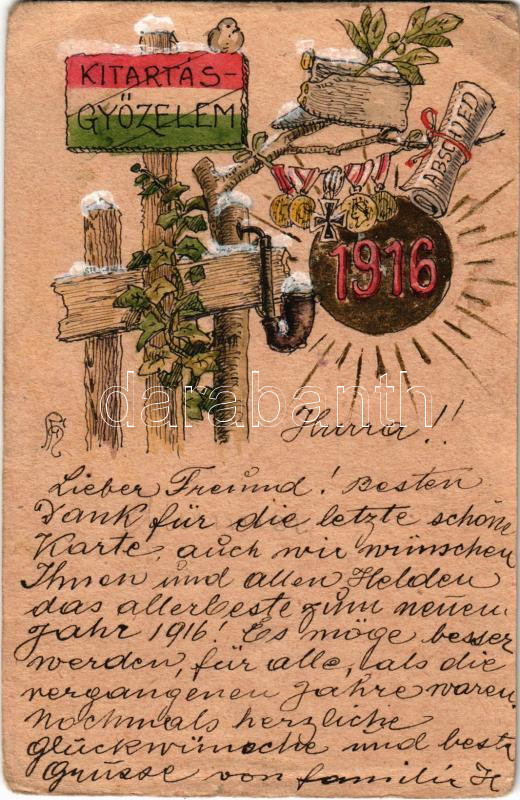 KITARTÁS-
GYŐZELEM
ABSCHIED
1916
darabanth
Hurra!!
Lieber Freund! Besten
Dank für die letzte schöne
Karte, auch wir wünschen
Ihnen und allen Helden
das allerbeste zum neuen
Jahr 1916! Es möge besser
werden, für alle, als die
vergangenen Jahre waren.
Nochmals herzliche
glückwünsche und beste
Grüsse von familie H